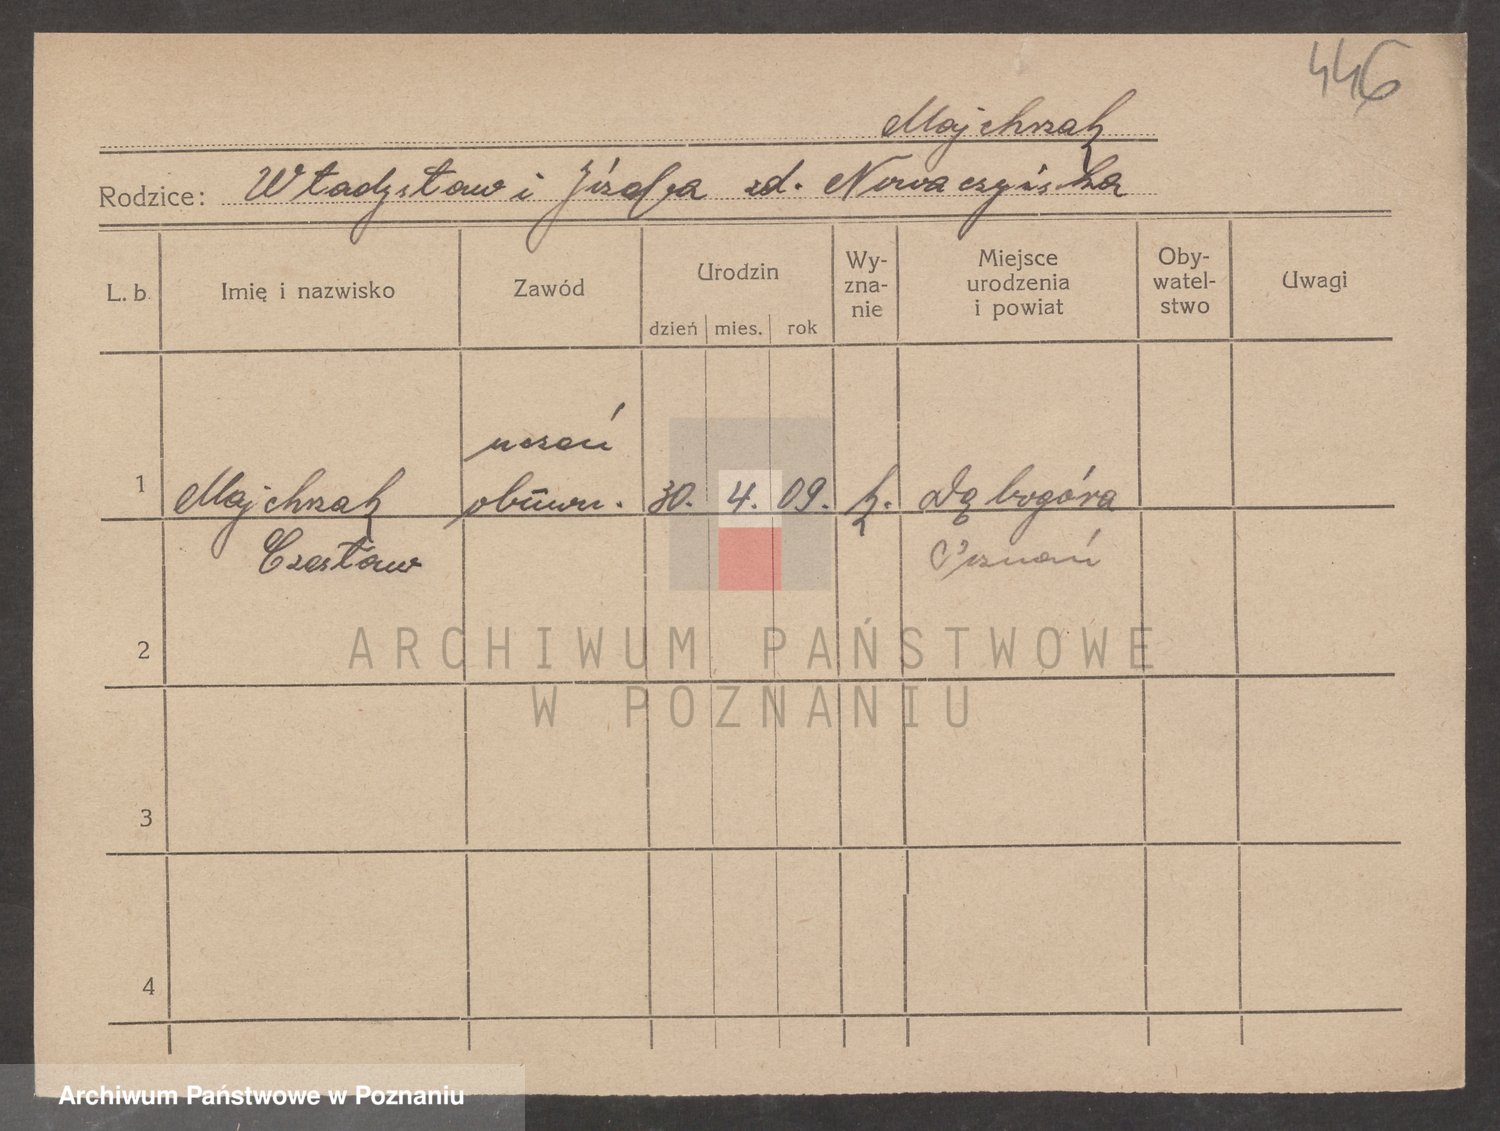 446
Majchrzak
Rodzice: Władysław i Józefa zd. Nowaczyńska
L. b. Imię i nazwisko Zawód Urodzin dzień mies. rok Wy-zna-nie Miejsce urodzenia i powiat Oby-watel-stwo Uwagi
uczeń
1 Majchrzak obuwn. 30. 4. 09. k. Dąbrogóra
Czesław Poznań
2
ARCHIWUM PAŃSTWOWE
W POZNANIU
3
4
Archiwum Państwowe w Poznaniu